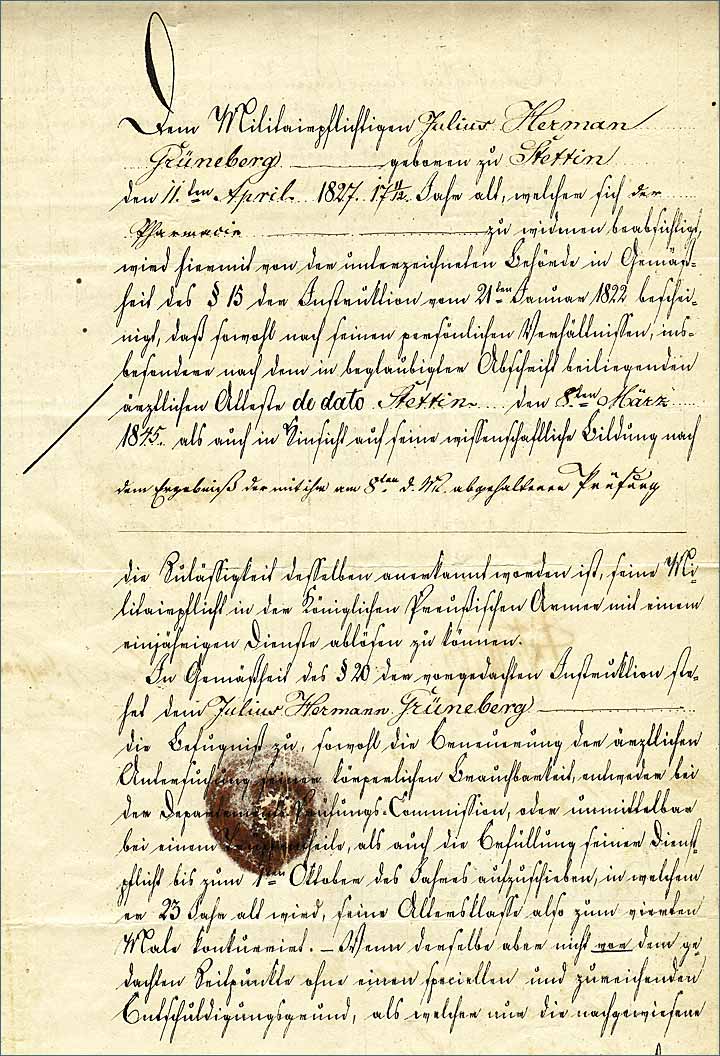 Dem Militairpflichtigen Julius Herman
Grüneberg geboren zu Stettin
den 11.ten April 1827. 17 11/12. Jahr alt, welcher sich der
Pharmacie zu widmen beabsichtigt,
wird hiermit von der unterzeichneten Behörde in Gemäß-
heit des § 15 der Instruktion vom 21ten Januar 1822 beschei-
nigt, daß sowohl nach seinen persönlichen Verhältnissen, ins-
besondere nach dem in beglaubigter Abschrift beiliegenden
ärztlichen Atteste de dato Stettin den 8.ten März
1845. als auch in Hinsicht auf seine wissenschaftliche Bildung nach
dem Ergebniß der mit ihm am 8ten d. M. abgehaltenen Prüfung
die Zulässigkeit desselben anerkannt worden ist, seine Mi-
litairpflicht in der Königlichen Preußischen Armee mit einem
einjährigen Dienste ablösen zu können.
In Gemäßheit des § 20 der vorgedachten Instruktion ste-
het dem Julius Hermann Grüneberg
die Befugniß zu, sowohl die Erneuerung der ärztlichen
Untersuchung seiner körperlichen Brauchbarkeit, entweder bei
der Departements-Prüfungs-Commission, oder unmittelbar
bei einem Truppentheile, als auch die Erfüllung seiner Dienst-
pflicht bis zum 1ten Oktober des Jahres aufzuschieben, in welchem
er 23 Jahr alt wird, seine Altersklasse also zum vierten
Male konkurrirt. – Wenn derselbe aber nicht vor dem ge-
dachten Zeitpunkte ohne einen speciellen und zureichenden
Entschuldigungsgrund, als welcher nur die nachgewiesene